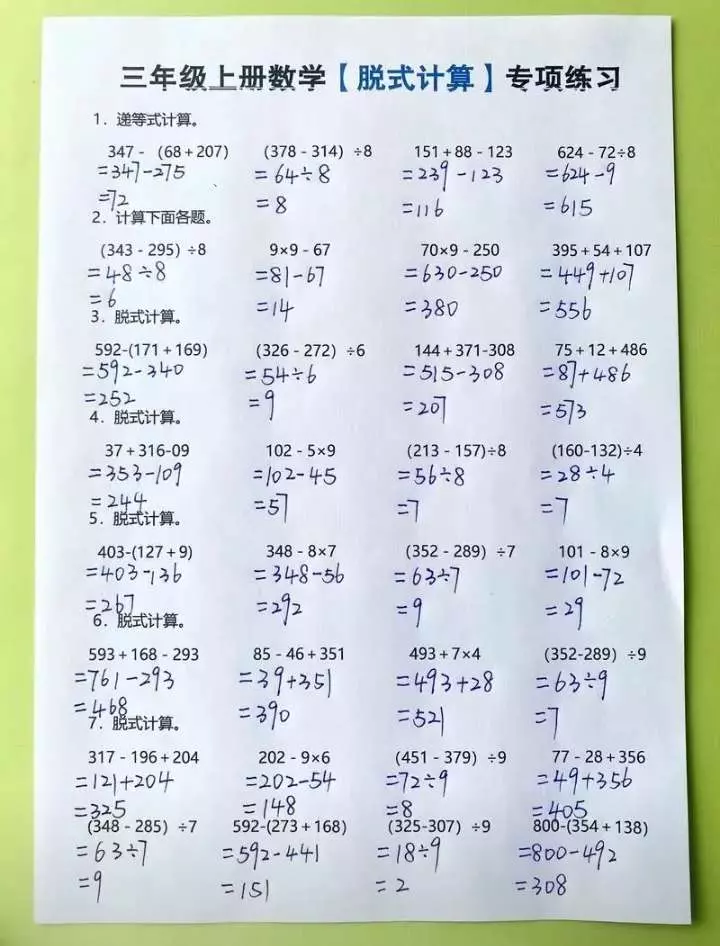 三年级上册数学【脱式计算】专项练习
1．递等式计算。
347 - （68 + 207) (378 - 314）÷8 151 + 88 - 123 624 - 72÷8
=347-275 =64÷8 =239-123 =624-9
=72 =8 =116 =615
2．计算下面各题。
(343 - 295）÷8 9×9 - 67 70×9 - 250 395 + 54 + 107
=48÷8 =81-67 =630-250 =449+107
=6 =14 =380 =556
3．脱式计算。
592-(171 + 169) (326 - 272）÷6 144 + 371-308 75 + 12 + 486
=592-340 =54÷6 =515-308 =87+486
=252 =9 =207 =573
4．脱式计算。
37 + 316-09 102 - 5×9 (213 - 157)÷8 (160-132)÷4
=353-109 =102-45 =56÷8 =28÷4
=244 =57 =7 =7
5．脱式计算。
403-(127 + 9) 348 - 8×7 (352 - 289）÷7 101 - 8×9
=403-136 =348-56 =63÷7 =101-72
=267 =292 =9 =29
6．脱式计算。
593 + 168 - 293 85 - 46 + 351 493 + 7×4 (352-289）÷9
=761-293 =39+351 =493+28 =63÷9
=468 =390 =521 =7
7．脱式计算。
317 - 196 + 204 202 - 9×6 (451 - 379）÷9 77 - 28 + 356
=121+204 =202-54 =72÷9 =49+356
=325 =148 =8 =405
(348 - 285）÷7 592-(273 + 168) (325-307）÷9 800-(354 + 138)
=63÷7 =592-441 =18÷9 =800-492
=9 =151 =2 =308